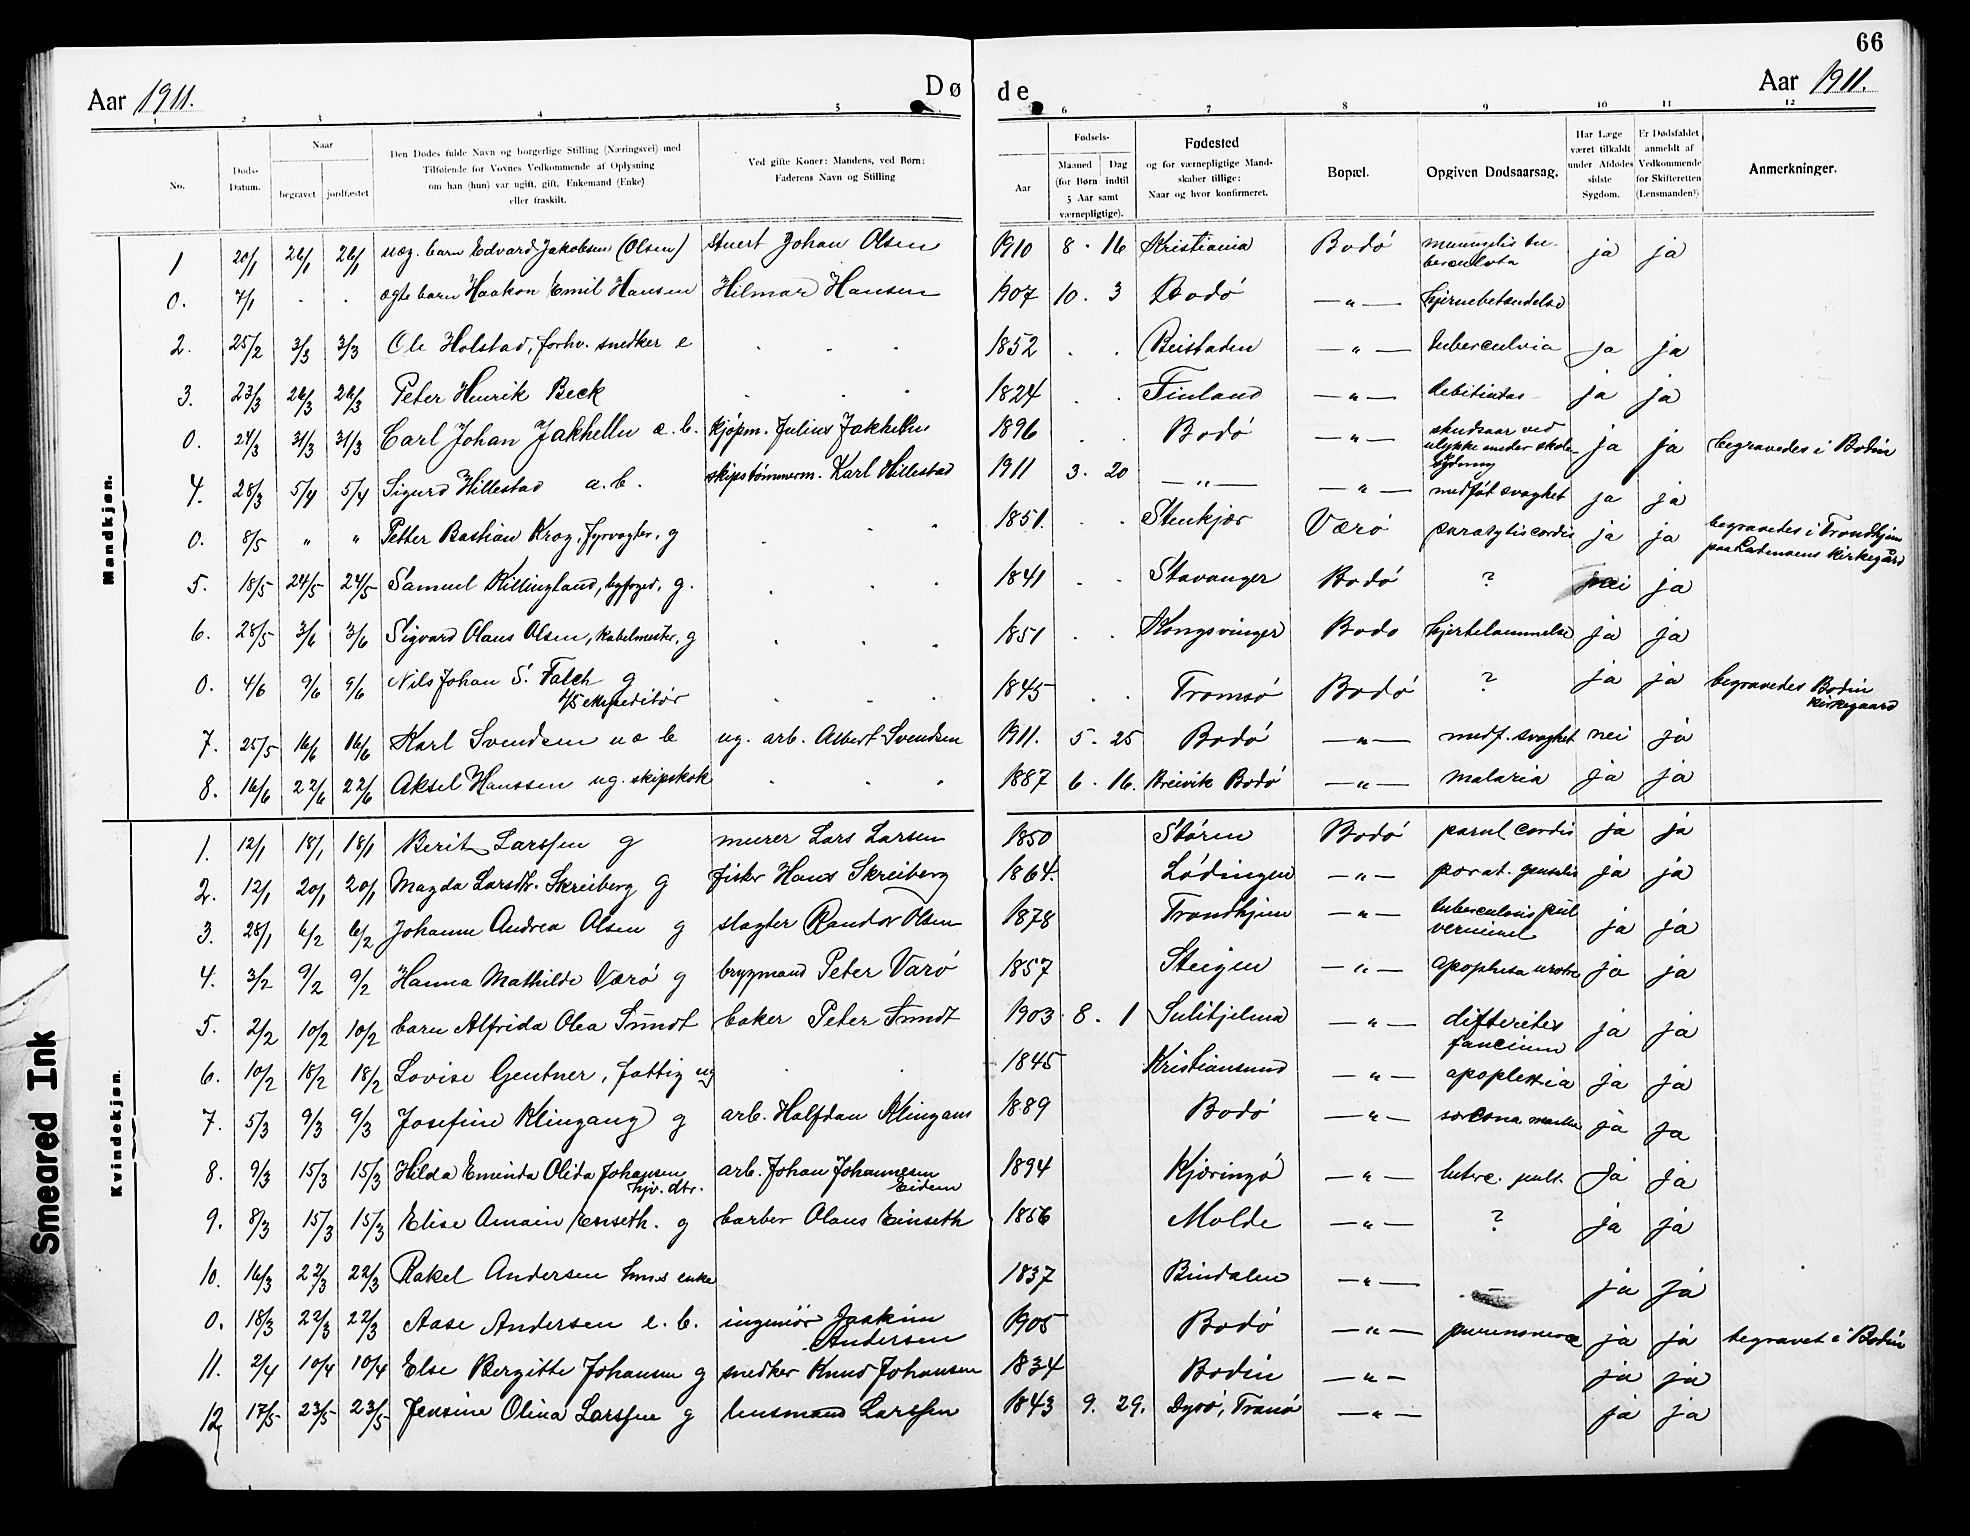 66
Aar 1911.
Dø de
Aar 1911.
1 2 3 4 5 6 7 8 9 10 11 12
No.
Døds-Datum.
Naar
begravet
jordfæstet
Den Dødes fulde Navn og borgerlige Stilling (Næringsvei) med
Tilføiende for Voxnes Vedkommende af Oplysning
om han (hun) var ugift, gift, Enkemand (Enke)
eller fraskilt.
Ved gifte Koner: Mandens, ved Børn:
Faderens Navn og Stilling
Fødsels-
Aar
Maaned Dag
(for Børn indtil
5 Aar samt
værnepligtige).
Fødested
og for værnepligtige Mand-
skaber tillige:
Naar og hvor konfirmeret.
Bopæl.
Opgiven Dødsaarsag.
Har Læge
været tilkaldt
under Afdødes
sidste
Sygdom.
Er Dødsfaldet
anmeldt af
Vedkommende
for Skifteretten
(Lensmanden)?
Anmerkninger.
Mandkjøn.
1 20/1 26/1 26/1 uæg. barn Edvard Jakobsen (Olsen) stuert Johan Olsen 1910 8 . 16 Kristiania Bodó ja ja
0. 7/1 . . ægte barn Haakon Emil Hansen Hilmar Hansen 1907 10. 3 Bodó — " — hjernebetændelse
2. 25/2 3/3 3/3 Ole Holstad, forhv. snedker e . . . 1852 . . Beistaden — " — tuberculosia ja ja
3. 23/3 26/3 26/3 Peter Henrik Beck . . . 1824 . . Finland — " — ja ja
0. 24/3 31/3 31/3 Carl Johan Jakhelln e. b. kjøpm. Julius Jakhelln 1896 . . Bodó — " — skudsaar ved
ulykke under skole-
ja ja begravedes i Bodin
4. 28/3 5/4 5/4 Sigurd Hillestad a. b. skipstømmerm. Karl Hillestad 1911 3. 20 — " — — " — medfót svaghet ja ja
0. 8/5 " " Petter Bastian Krog, fyrvogter, g . . . 1851. . . Stenkjær Væró paralytis cordis ja ja begravedes i Trondhjem
paa Lademoens kirkegård
5. 18/5 24/5 24/5 Samuel Killingland, byfoged, g. . . . 1841 . . Stavanger Bodó ? nei ja
6. 28/5 3/6 3/6 Sigvard Olaus Olsen, kabelmester, g . . . 1851 . . Kongsvinger Bodo hjertelammelse ja ja
0. 4/6 9/6 9/6 Nils Johan S. Falch g
A/S ekspeditór
. . . 1845 . . Tromsó Bodó ? ja ja begravedes Bodin
kirkegaard
7. 25/5 16/6 16/6 Karl Svendsen u e b ug. arb. Albert Svendsen 1911. 5. 25 Bodó — " — medf. svaghet nei ja
8. 16/6 22/6 22/6 Aksel Hanssen ug. skipskok . . . 1887 6. 16. Breivik Bodó — " — malaria ja ja
Kvindekjøn.
1. 12/1 18/1 18/1 Berit Larssen g murer Lars Larsen 1850 Stóren Bodó paral cordis ja ja
2. 12/1 20/1 20/1 Magda Larsdtr. Skreiberg g fisker Hans Skreiberg 1864. Lódingen — " — ja ja
3. 28/1 6/2 6/2 Johanne Andrea Olsen g slagter Randor Olsen 1878 Trondhjem — " — tuberculosis pul
ja ja
4. 3/2 9/2 9/2 Hanna Mathilde Væró g brygmand Peter Væró 1857 Steigen — " — ja ja
5. 2/2 10/2 10/2 barn Alfrida Olea Sundt baker Peter Sundt 1903 8. 1 Sulitjelma — " — difterites
faucium ja ja
6. 10/2 18/2 18/2 Lovise Gentner, fattig ug . . 1845 Kristiansund — " — apoplexia ja ja
7. 5/3 9/3 9/3 Josefine Klingang g arb. Halfdan Klingang 1889 Bodó — " — ja ja
8. 9/3 15/3 15/3 Hilda Eminda Olida Johansen
hjv. dtr.
arb. Johan Johannesen
Eidem
1894 Kjæringó " — tuberc. pulr. ja ja
9. 8/3 15/3 15/3 Elise Amain Einseth. g barber Olaus Einseth 1866 Molde — " — ? ja ja
10. 16/3 22/3 22/3 Rakel Andersen enke 1837 Bindalen — " — — ja ja
0. 18/3 22/3 22/3 Aase Andersen e. b. ingeniør Joakim
Andersen
1905 Bodó — " — ja ja begravet i Bodin
11. 2/4 10/4 10/4 Else Bergitte Johansen g snedker Knud Johansen 1834 Bodin — " — ja ja
12 17/5 23/5 23/5 Jensine Olina Larssen g lensmand Larssen 1843 9. 29. Dyró, Tranó — " — ja ja
Smeared Ink